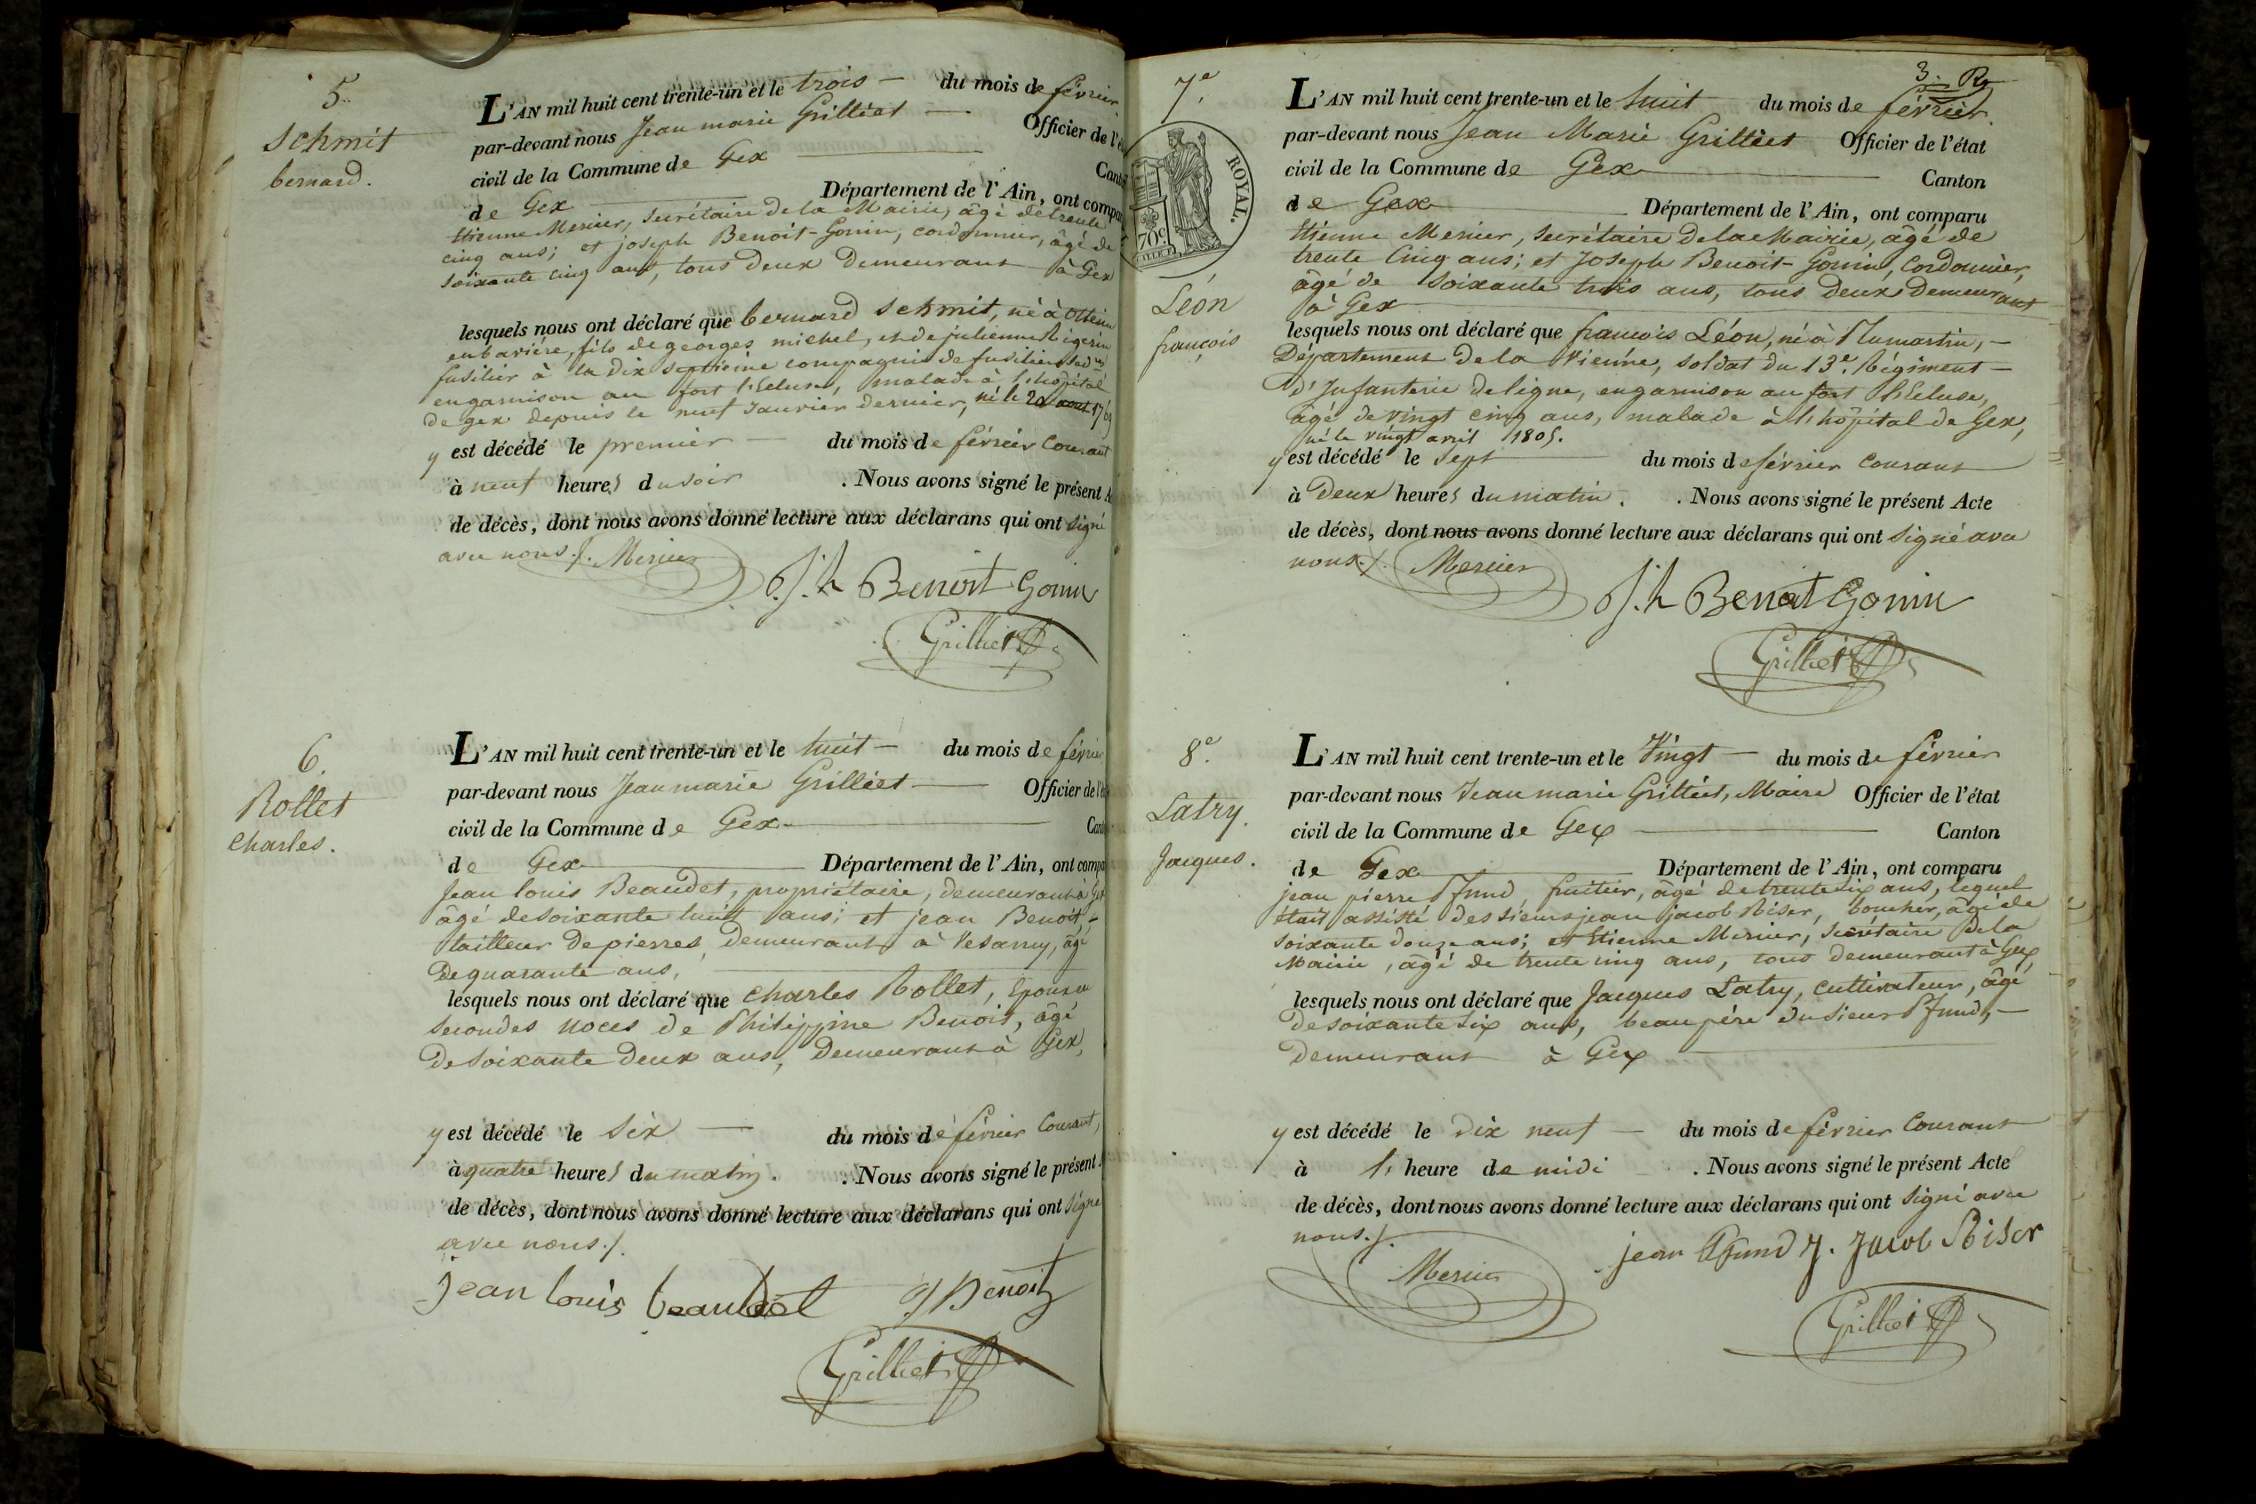 5.
Schmit
bernard.
L'AN mil huit cent trente-un et le trois — du mois de février
par-devant nous Jean marie Grilliet — Officier de l'é
civil de la Commune de Gex — Cant
de Gex — Département de l'Ain, ont compa
Etienne Mercier, Secrétaire de la Mairie, âgé de trente
cinq ans; et joseph Benoit-Gonin, cordonnier, âgé de
soixante cinq ans, tous deux demeurant à Gex
lesquels nous ont déclaré que bernard Schmit, né à
en bavière, fils de georges michel, et de julienne
fusilier à la dix septième compagnie de fusiliers
en garnison au fort l'Ecluse, malade à l'hôpital
de gex depuis le neuf Janvier dernier, né le 20 aout
y est décédé le premier — du mois de février Courant
à neuf heures du soir . Nous avons signé le présent A
de décès, dont nous avons donné lecture aux déclarans qui ont signé
avec nous ./. Mercier
J.h Benoit Gonin
Grilliet
6.
Rollet
Charles.
L'AN mil huit cent trente-un et le huit — du mois de février
par-devant nous Jean marie Grilliet — Officier de l'é
civil de la Commune de Gex — Cant
de Gex — Département de l'Ain, ont compa
Jean louis Beaudet, propriétaire, demeurant à Gex
âgé de soixante huit ans; et jean Benoit,
tailleur de pierres, demeurant à Vesancy, âgé
de quarante ans,
lesquels nous ont déclaré que Charles Rollet, Epoux en
secondes noces de Philippine Benoit, âgé
de soixante deux ans, demeurant à Gex,
y est décédé le six — du mois de février Courant,
à quatre heures du matin. . Nous avons signé le présent
de décès, dont nous avons donné lecture aux déclarans qui ont signé
avec nous ./.
jean louis beaudet J Benoit
Grilliet
3.
7.e
ROYAL.
70c
Léon
françois
L'AN mil huit cent trente-un et le huit du mois de février
par-devant nous Jean Marie Grilliet Officier de l'état
civil de la Commune de Gex — Canton
de Gex — Département de l'Ain, ont comparu
Etienne Mercier, Secrétaire de la Mairie, âgé de
trente Cinq ans; et Joseph Benoit-Gonin, Cordonnier,
âgé de soixante trois ans, tous deux demeurant
à Gex
lesquels nous ont déclaré que françois Léon, né à Plumartin, —
Département de la Vienne, soldat du 13.e Régiment —
d'Infanterie de ligne, en garnison au fort l'Ecluse,
âgé de vingt cinq ans, malade à l'hôpital de Gex,
né le vingt avril 1805.
y est décédé le sept — du mois de février Courant
à Deux heures du matin. . Nous avons signé le présent Acte
de décès, dont nous avons donné lecture aux déclarans qui ont signé avec
nous ./. Mercier
J.h Benoit Gonin
Grilliet
8.e
Latry.
Jacques.
L'AN mil huit cent trente-un et le Vingt — du mois de février
par-devant nous Jean marie Grilliet, Maire Officier de l'état
civil de la Commune de Gex — Canton
de Gex — Département de l'Ain, ont comparu
jean pierre Pfund fruitier, âgé de trente six ans, lequel
était assisté des sieurs jean jacob Riser, boucher, âgé de
soixante douze ans; et Etienne Mercier, Secrétaire de la
Mairie, âgé de trente cinq ans, tous demeurant à Gex,
lesquels nous ont déclaré que Jacques Latry, cultivateur, âgé
de soixante six ans, beau père du sieur Pfund, —
demeurant à Gex
y est décédé le dix neuf — du mois de février Courant
à l' heure de midi . Nous avons signé le présent Acte
de décès, dont nous avons donné lecture aux déclarans qui ont signé avec
nous ./.
Mercier jean Pfund J. Jacob Riser
Grilliet